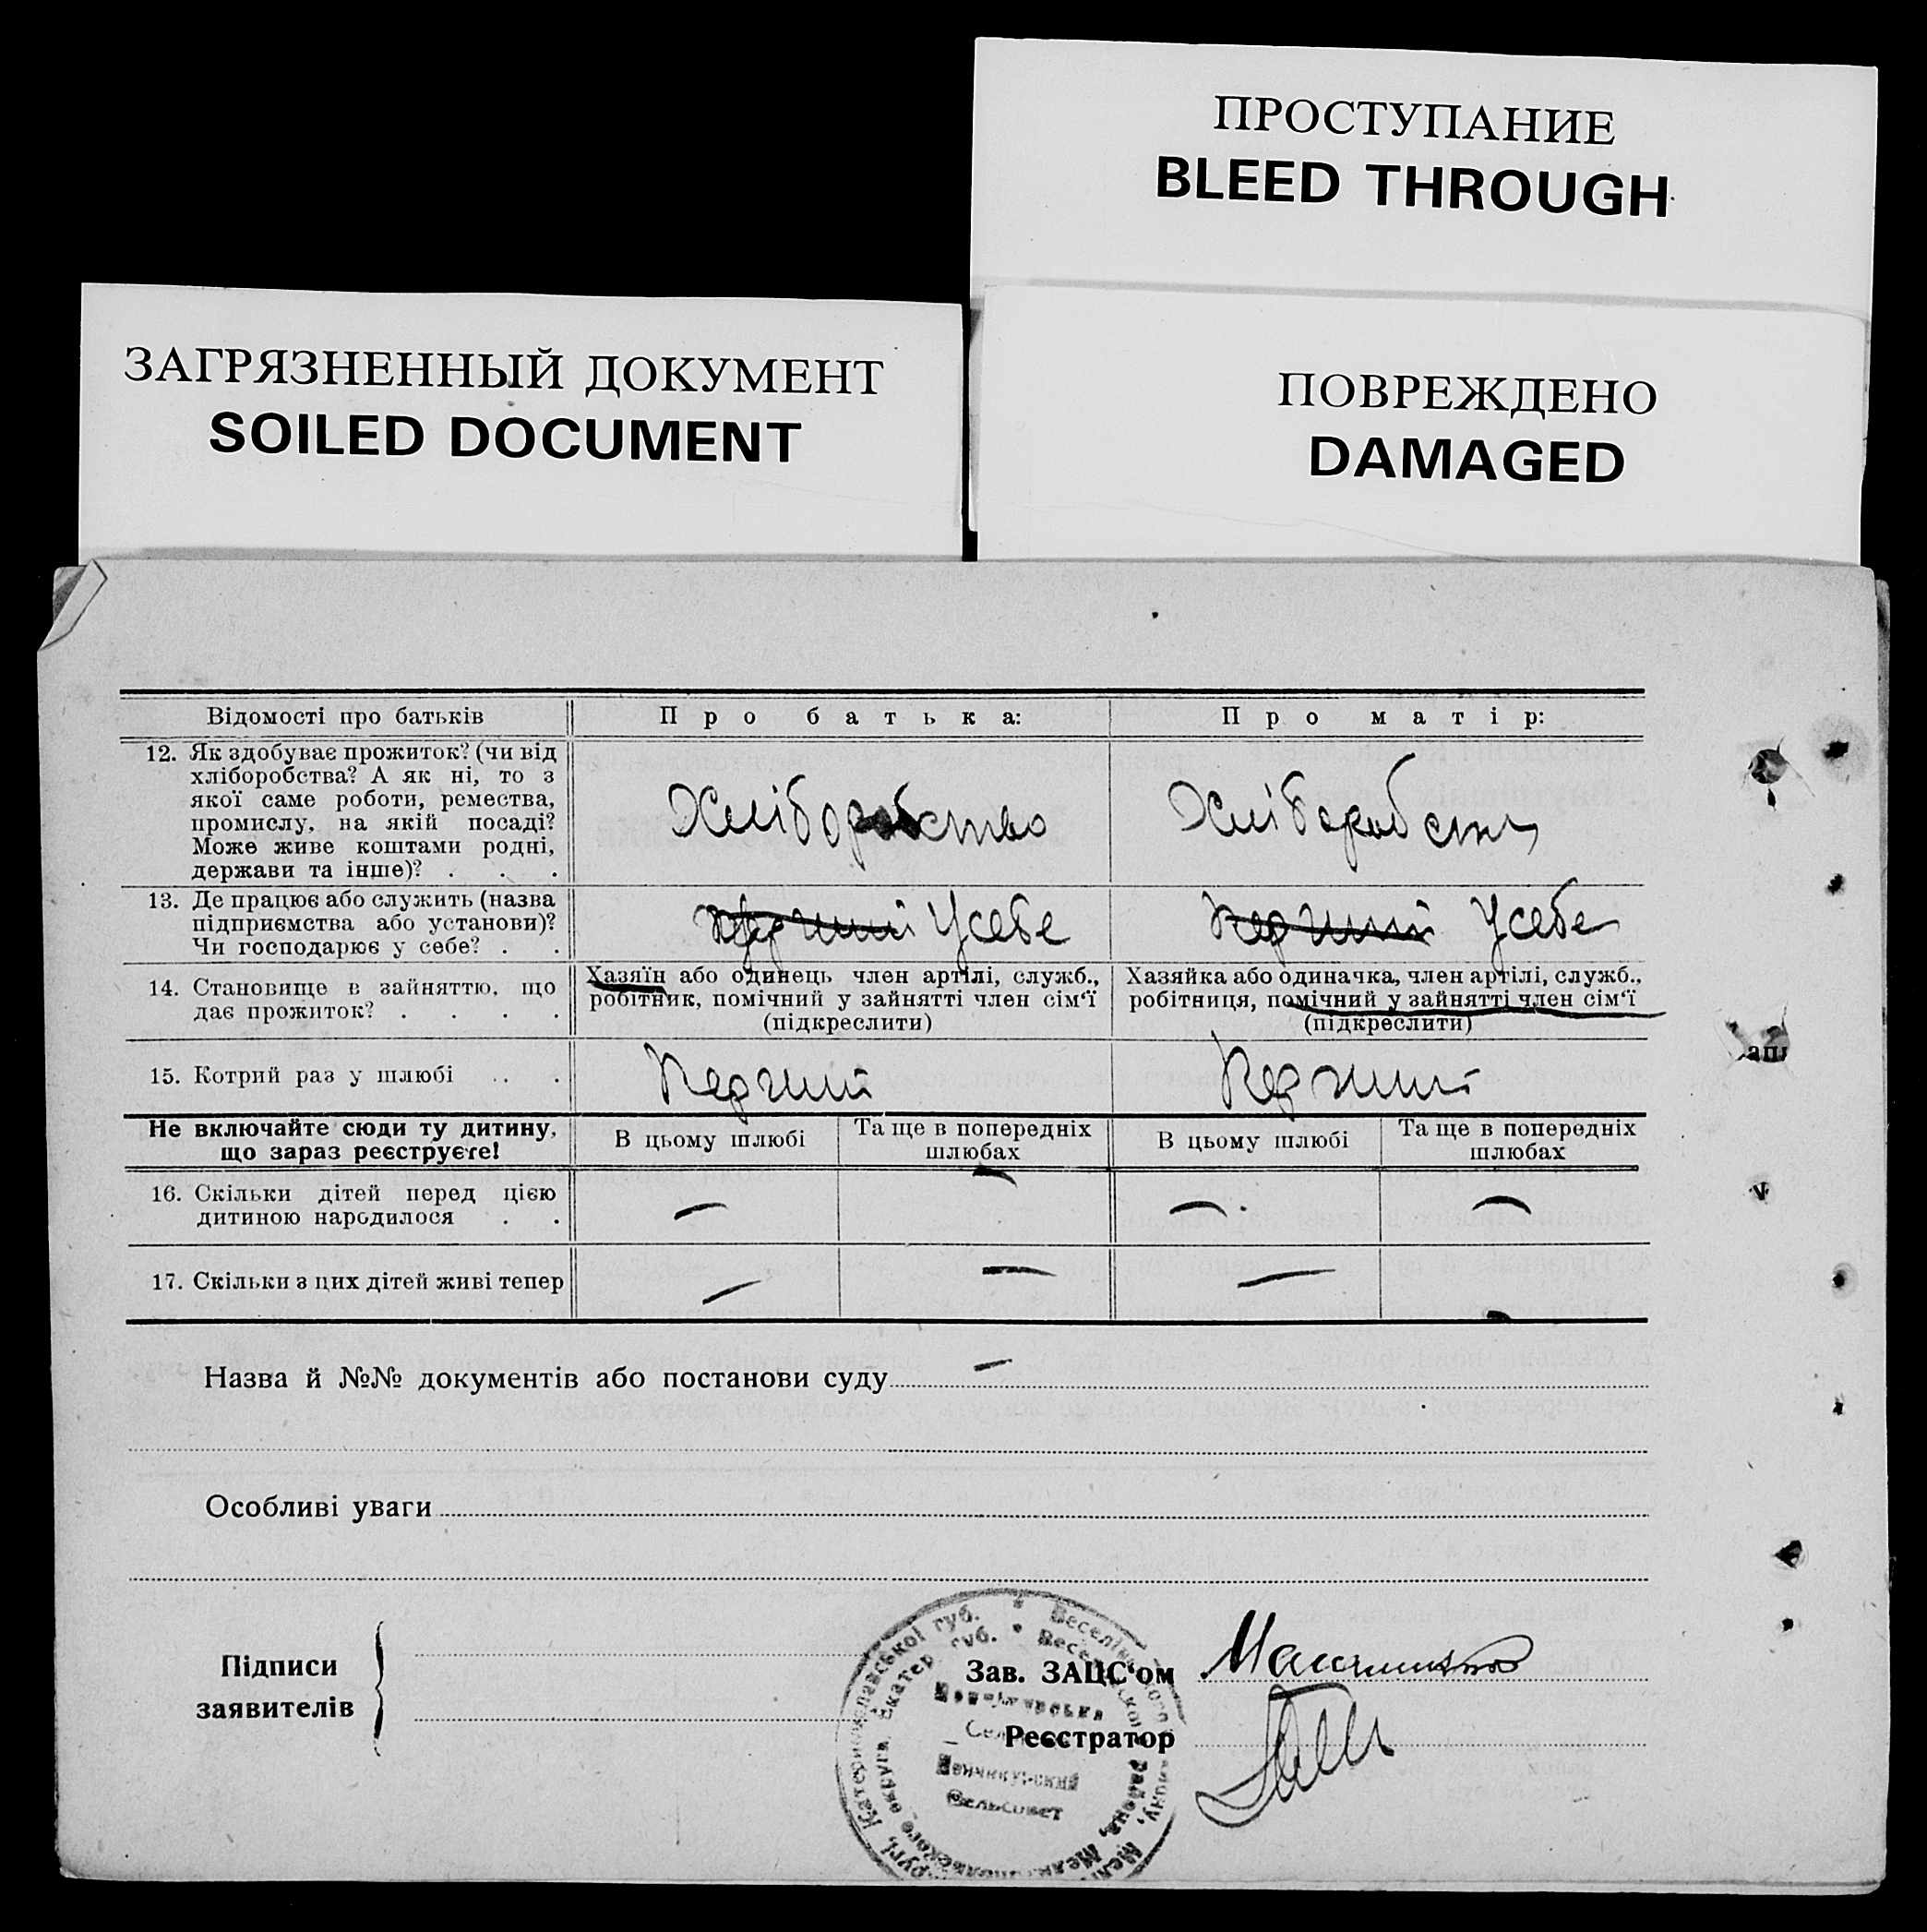 ПРОСТУПАНИЕ
BLEED THROUGH
ЗАГРЯЗНЕННЫЙ ДОКУМЕНТ
SOILED DOCUMENT
ПОВРЕЖДЕНО
DAMAGED
Відомості про батьків
Про батька:
Про матір:
12. Як здобуває прожиток? (чи від
хліборобства? А як ні, то з
якої саме роботи, ремества,
промислу, на якій посаді?
Може живе коштами родні,
держави та інше)? . . .
Хліборобство
Хліборобств
13. Де працює або служить (назва
підприємства або установи)?
Чи господарює у себе? . .
перший Усебе
перший Усебе
14. Становище в зайняттю, що
дає прожиток? . . . .
Хазяїн або одинець член артілі, служб.,
робітник, помічний у зайнятті член сім'ї
(підкреслити)
Хазяйка або одиначка, член артілі, служб.,
робітниця, помічний у зайнятті член сім'ї
(підкреслити)
15. Котрий раз у шлюбі . . .
Перший
Перший
Не включайте сюди ту дитину,
що зараз реєструєте!
В цьому шлюбі
Та ще в попередніх
шлюбах
В цьому шлюбі
Та ще в попередніх
шлюбах
16. Скільки дітей перед цією
дитиною народилося . .
— — — —
17. Скільки з цих дітей живі тепер
— — — —
Назва й №№ документів або постанови суду —
Особливі уваги
Підписи
заявителів
Зав. ЗАЦС'ом
Реєстратор
сельсовет